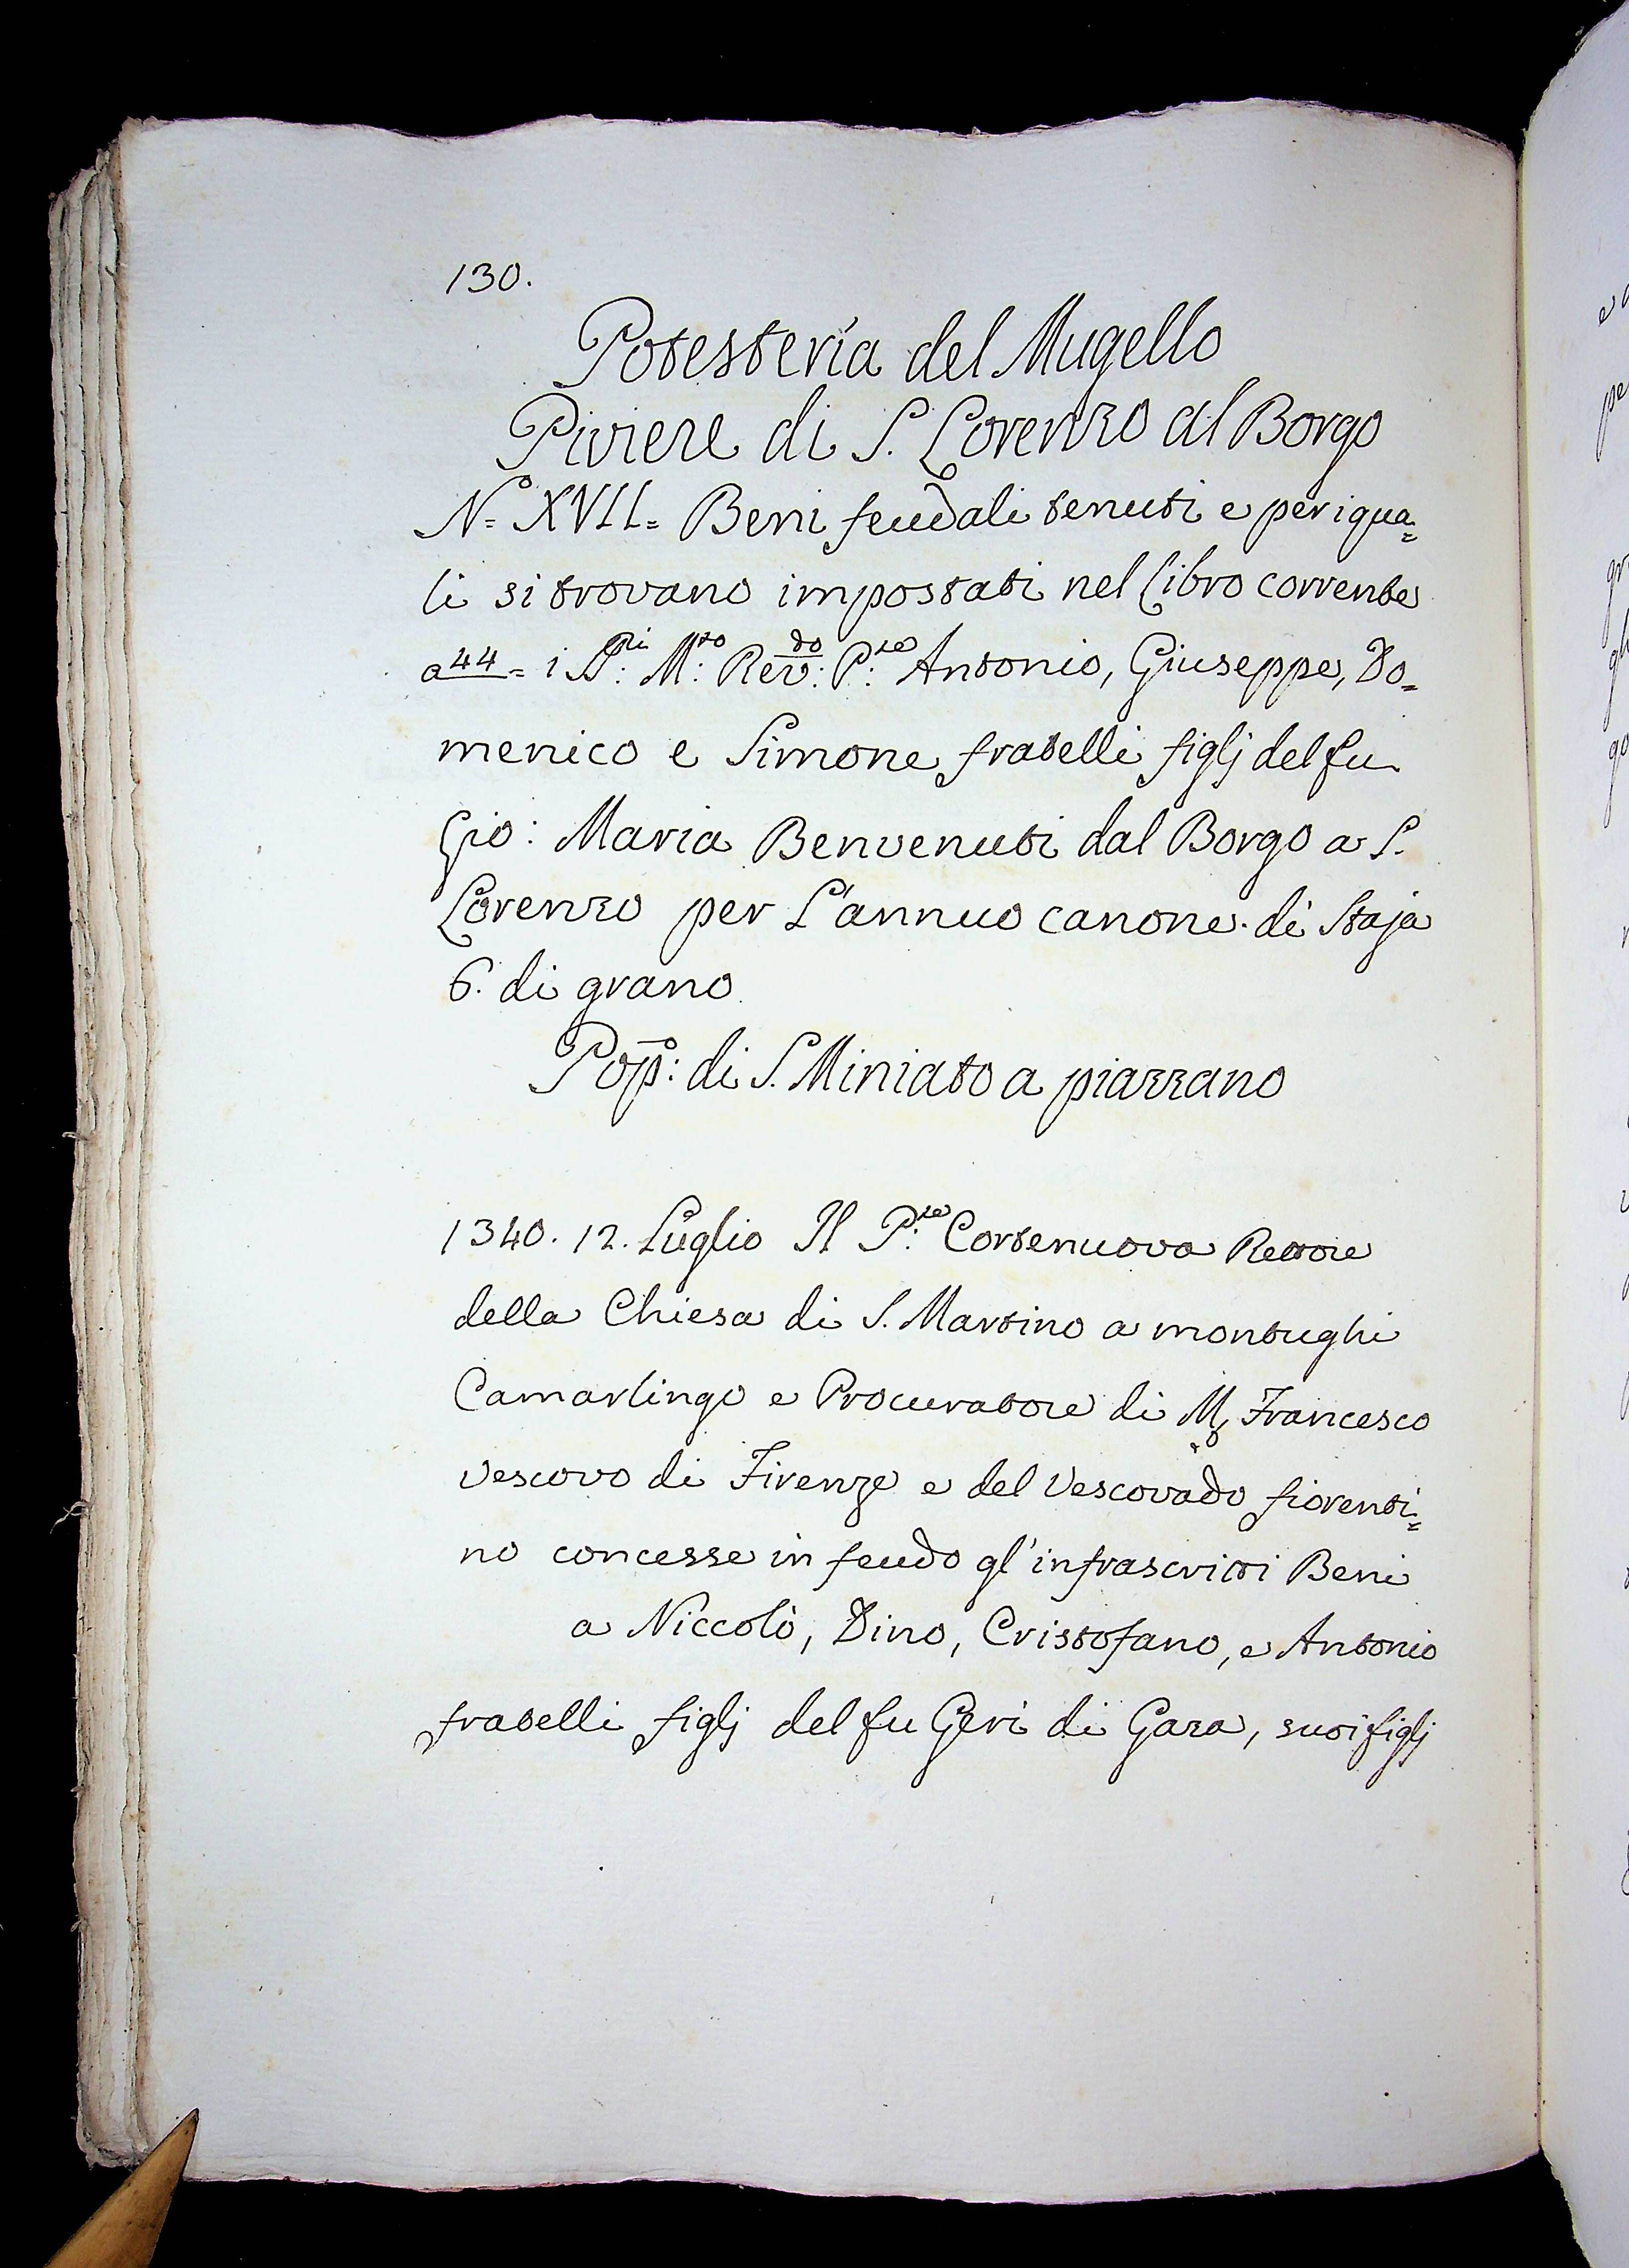 130.
Potesteria del Mugello
Piviere di S. Lorenzo al Borgo
N.º XVII= Beni feudali tenuti e per i qua=
li si trovano impostati nel Libro corrente
a 44= i SS:ri M:to Rev:do P:te Antonio, Giuseppe, Do=
menico e Simone fratelli figlj del fu
Gio: Maria Benvenuti dal Borgo a S.
Lorenzo per L'annuo canone di Staja
6. di grano
Pop:º di S. Miniato a piazzano
1340. 12. Luglio Il P:te Cortenuova Rettore
della Chiesa di S. Martino a montughi
Camarlingo e Procuratore di M. Francesco
Vescovo di Firenze e del Vescovado fiorenti=
no concesse in feudo gl'infrascritti Beni
a Niccolò, Dino, Cristofano, e Antonio
fratelli figlj del fu Geri di Gaza, suoi figlj